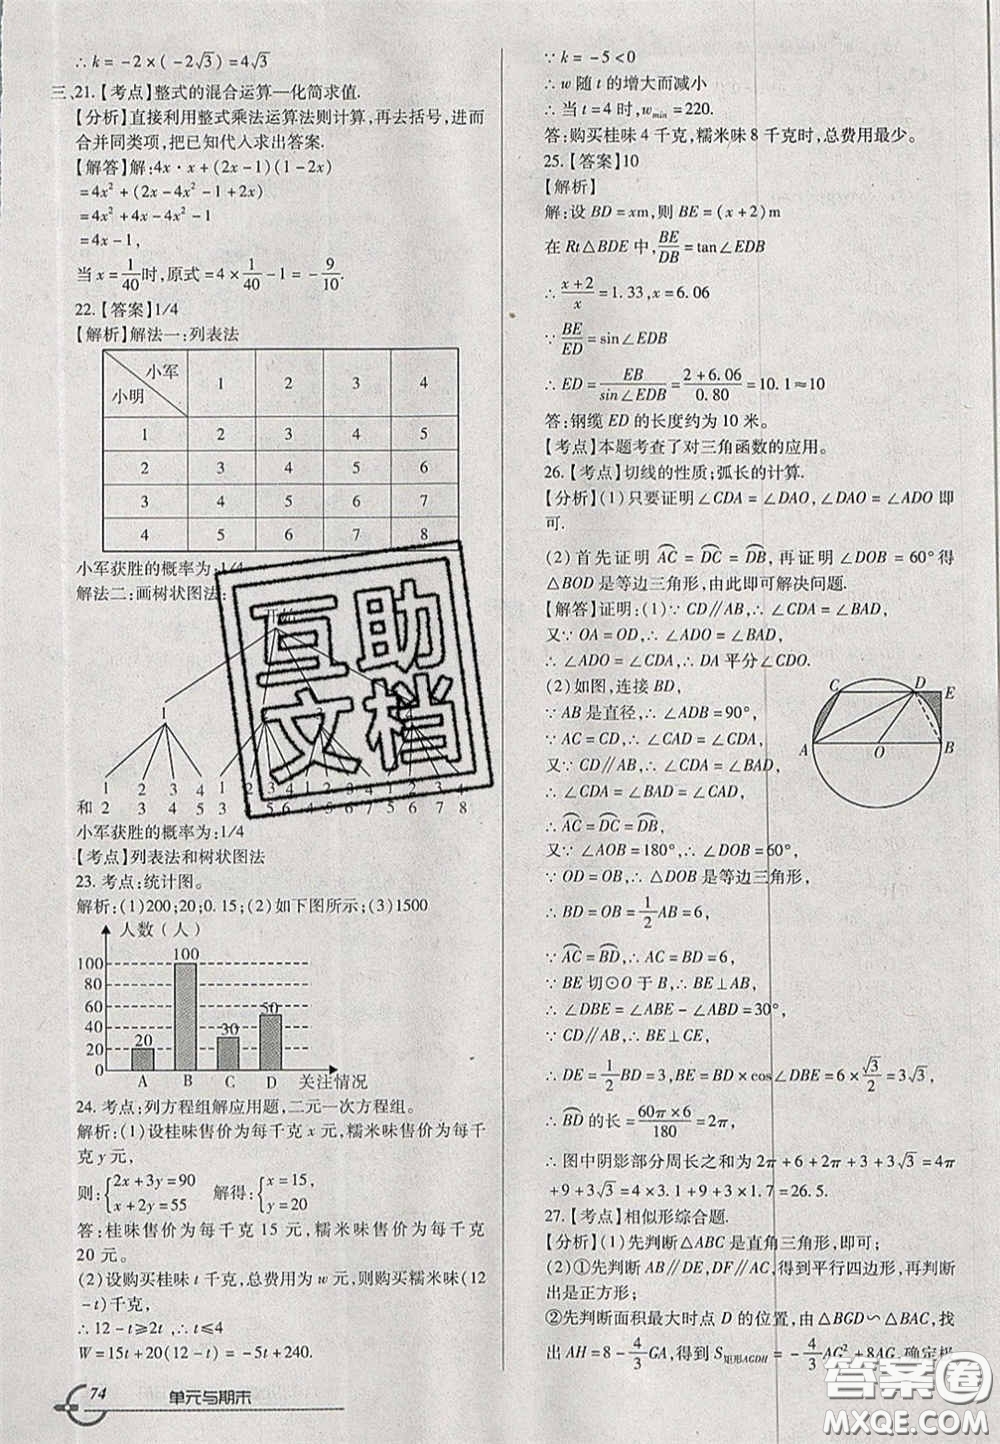 ∴k=-2×(-2√3)=4√3
三、21.【考点】整式的混合运算—化简求值.
【分析】直接利用整式乘法运算法则计算,再去括号,进而
合并同类项,把已知代人求出答案.
【解答】解:4x·x+(2x-1)(1-2x)
=4x²+(2x-4x²-1+2x)
=4x²+4x-4x²-1
=4x-1,
当x=1/40时,原式=4×1/40-1=-9/10.
22.【答案】1/4
【解析】解法一:列表法
小军 小明 1 2 3 4
1 2 3 4 5
2 3 4 5 6
3 4 5 6 7
4 5 6 7 8
小军获胜的概率为:1/4
解法二:画树状图法:
1
1 2 3 4 1 2 3 4 1 2 3 4 1 2 3 4
和 2 3 4 5 3 4 5 6 4 5 6 7 5 6 7 8
小军获胜的概率为:1/4
【考点】列表法和树状图法
23.考点:统计图。
解析:(1)200;20;0.15;(2)如下图所示;(3)1500
人数(人)
100
100
80
60
40
20
0
20
30
50
A B C D 关注情况
24.考点:列方程组解应用题,二元一次方程组。
解析:(1)设桂味售价为每千克x元,糯米味售价为每千
克y元,
则:{2x+3y=90 x+2y=55 解得:{x=15, y=20
答:桂味售价为每千克15元,糯米味售价为每千克
20元。
(2)设购买桂味t千克,总费用为w元,则购买糯米味(12
-t)千克,
∴12-t≥2t,∴t≤4
W=15t+20(12-t)=-5t+240.
74 单元与期末
∵k=-5<0
∴w随t的增大而减小
∴当t=4时,wmin=220.
答:购买桂味4千克,糯米味8千克时,总费用最少。
25.【答案】10
【解析】
解:设BD=xm,则BE=(x+2)m
在Rt△BDE中,BE/DB=tan∠EDB
∴(x+2)/x=1.33,x=6.06
∵BE/ED=sin∠EDB
∴ED=EB/sin∠EDB=(2+6.06)/0.80=10.1≈10
答:钢缆ED的长度约为10米。
【考点】本题考查了对三角函数的应用。
26.【考点】切线的性质;弧长的计算.
【分析】(1)只要证明∠CDA=∠DAO,∠DAO=∠ADO即
可.
(2)首先证明AC⌒=DC⌒=DB⌒,再证明∠DOB=60°得
△BOD是等边三角形,由此即可解决问题.
【解答】证明:(1)∵CD∥AB,∴∠CDA=∠BAD,
又∵OA=OD,∴∠ADO=∠BAD,
∴∠ADO=∠CDA,∴DA平分∠CDO.
(2)如图,连接BD,
∵AB是直径,∴∠ADB=90°,
∵AC=CD,∴∠CAD=∠CDA,
又∵CD∥AB,∴∠CDA=∠BAD,
∴∠CDA=∠BAD=∠CAD,
∴AC⌒=DC⌒=DB⌒,
又∵∠AOB=180°,∴∠DOB=60°,
∵OD=OB,∴△DOB是等边三角形,
∴BD=OB=1/2AB=6,
∵AC⌒=BD⌒,∴AC=BD=6,
∵BE切⊙O于B,∴BE⊥AB,
∴∠DBE=∠ABE-∠ABD=30°,
∵CD∥AB,∴BE⊥CE,
∴DE=1/2BD=3,BE=BD×cos∠DBE=6×√3/2=3√3,
∴BD⌒的长=60π×6/180=2π,
∴图中阴影部分周长之和为2π+6+2π+3+3√3=4π
+9+3√3=4×3.1+9+3×1.7=26.5.
27.【考点】相似形综合题.
【分析】(1)先判断△ABC是直角三角形,即可;
(2)①先判断AB∥DE,DF∥AC,得到平行四边形,再判断
出是正方形;
②先判断面积最大时点D的位置,由△BGD∽△BAC,找
出AH=8-4/3GA,得到S矩形AGDH=-4/3AG²+8AG,确定极
C D E
A O B
互助
文档
答案圈
MXQE.COM